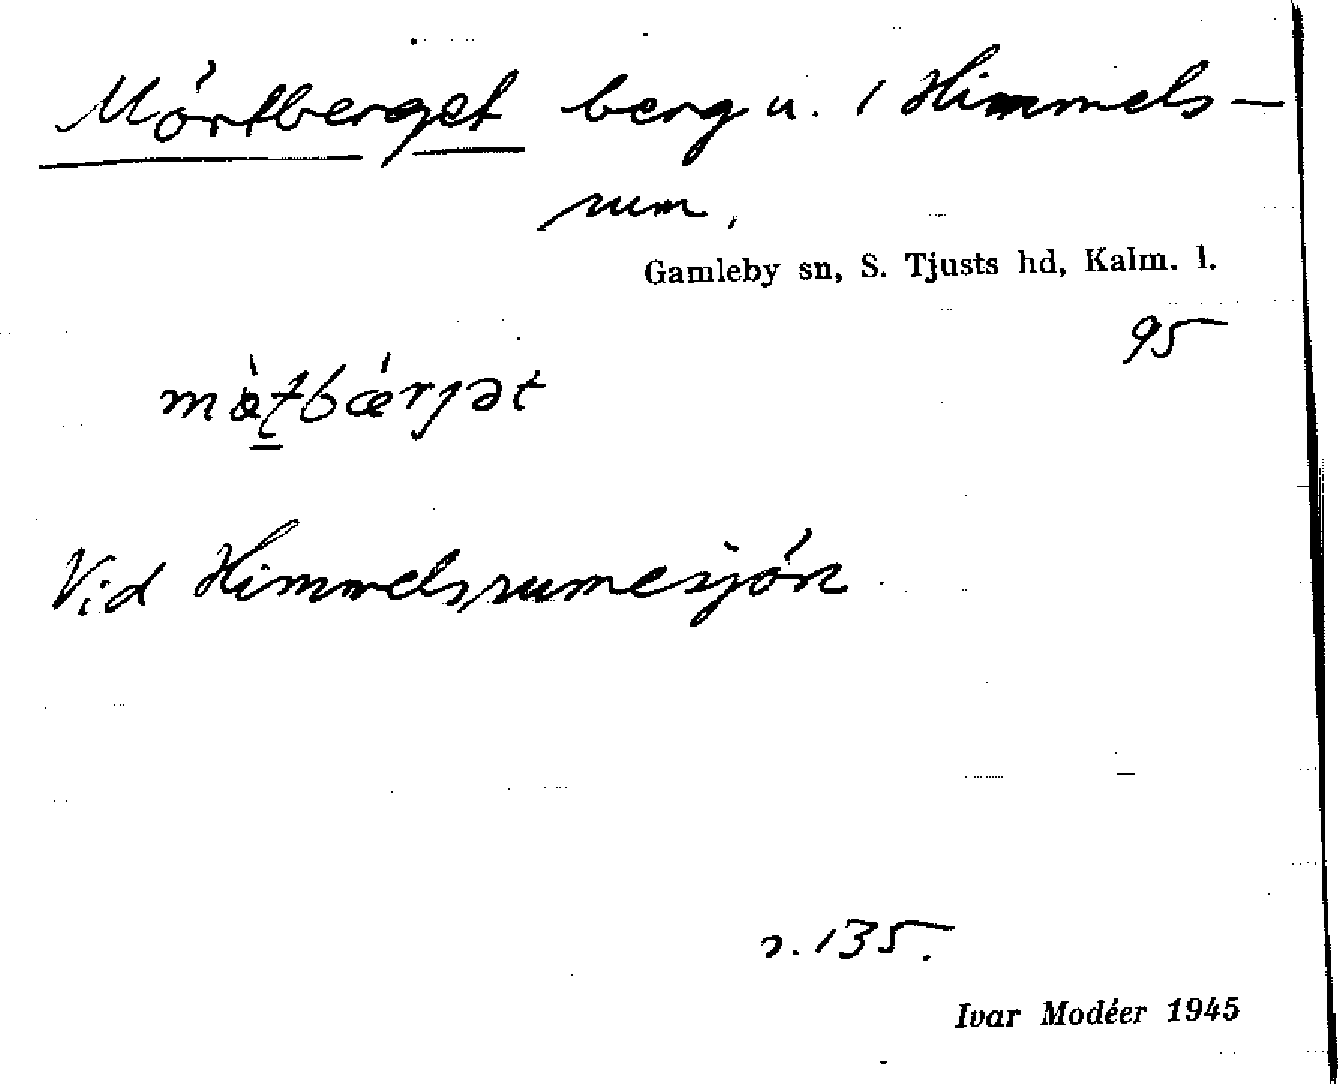 Mörtberget berg u. i Himmels-
rum.
Gamleby sn, S. Tjusts hd, Kalm. l.
95
Vid Himmelsrumesjön.
s. 135.
Ivar Modéer 1945